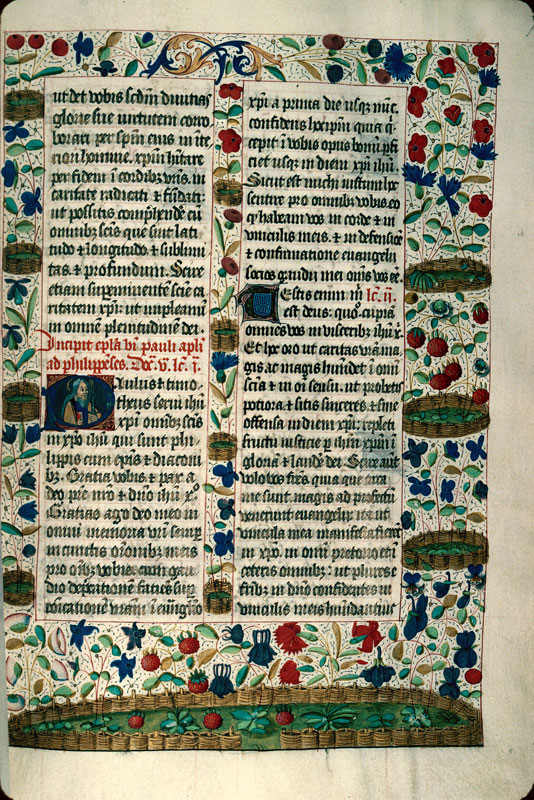 ut det vobis scdm divitias
glorie sue virtutem corro
borari per spm eius in ĩte
riori homine. xpm hĩtare
per fidem ĩ cordibz vr̃is. in
caritate radicati ⁊ fũdati:
ut possitis comp̃hendẽ cũ
omnibz sc̃is que sit lati
tudo ⁊ longitudo ⁊ sublimi
tas. ⁊ profundum. Scire
etiam supeminentẽ scie ca
ritatem xpi: ut impleamĩ
in omnẽ plenitudinẽ dei.
Incipit epl̃a bt̃i pauli apl̃i
ad philippeses. Doc. v. lc̃. j.
Paulus ⁊ timo
theus servi ihũ
xpi omibz scĩs
in xp̃o ihũ qui sunt phi
lippis cum ep̃is ⁊ diaconi
bz. Gratia vobis ⁊ pax a
deo pr̃e nr̃o ⁊ dnõ ihũ x̃.
Gratias ago deo meo in
omni memoria vr̃i semp
in cunctis or̃onibz meis
pro oĩbz vobis cum gau
dio dep̃cationẽ faciẽs sup
cõicatione vestra ĩ euũgelio
xp̃i a prima die usqz nũc.
confidens hoc ip̃m quia q̃
cepit ĩ vobis opus bonũ p̃fi
ciet usqz in diem xp̃i ihũ.
Sicut est michi iustum hoc
sentire pro omnibz vobis. eo
q habeam vos in corde ⁊ in
vinculis meis. ⁊ in defensiõe
⁊ confirmatione euangelii
socios gaudii mei omĩs vos eẽ.
Testis enim m̃ lc̃. ij.
est deus: quo cupiã
omnes vos in visceribz ihũ x̃.
Et hoc oro ut caritas vr̃a ma
gis ac magis habũdet ĩ omĩ
sciã ⁊ in oĩ sensu. ut probetis
potiora. ⁊ sitis sinceres ⁊ sine
offensa in diem xp̃i: repleti
fructu iusticie p ihm̃ xp̃m ĩ
gloriã ⁊ laudẽ dei. Scire aut̃
volo vos fr̃es quia que circa
me sunt magis ad profectũ
venerunt euangelii: ita ut
vincula mea manifesta fierẽt
in xp̃o. in omi pretorio et ĩ
ceteris omnibz: ut plures e
fr̃ibz in dnõ confidentes in
vinculis meis habundantius